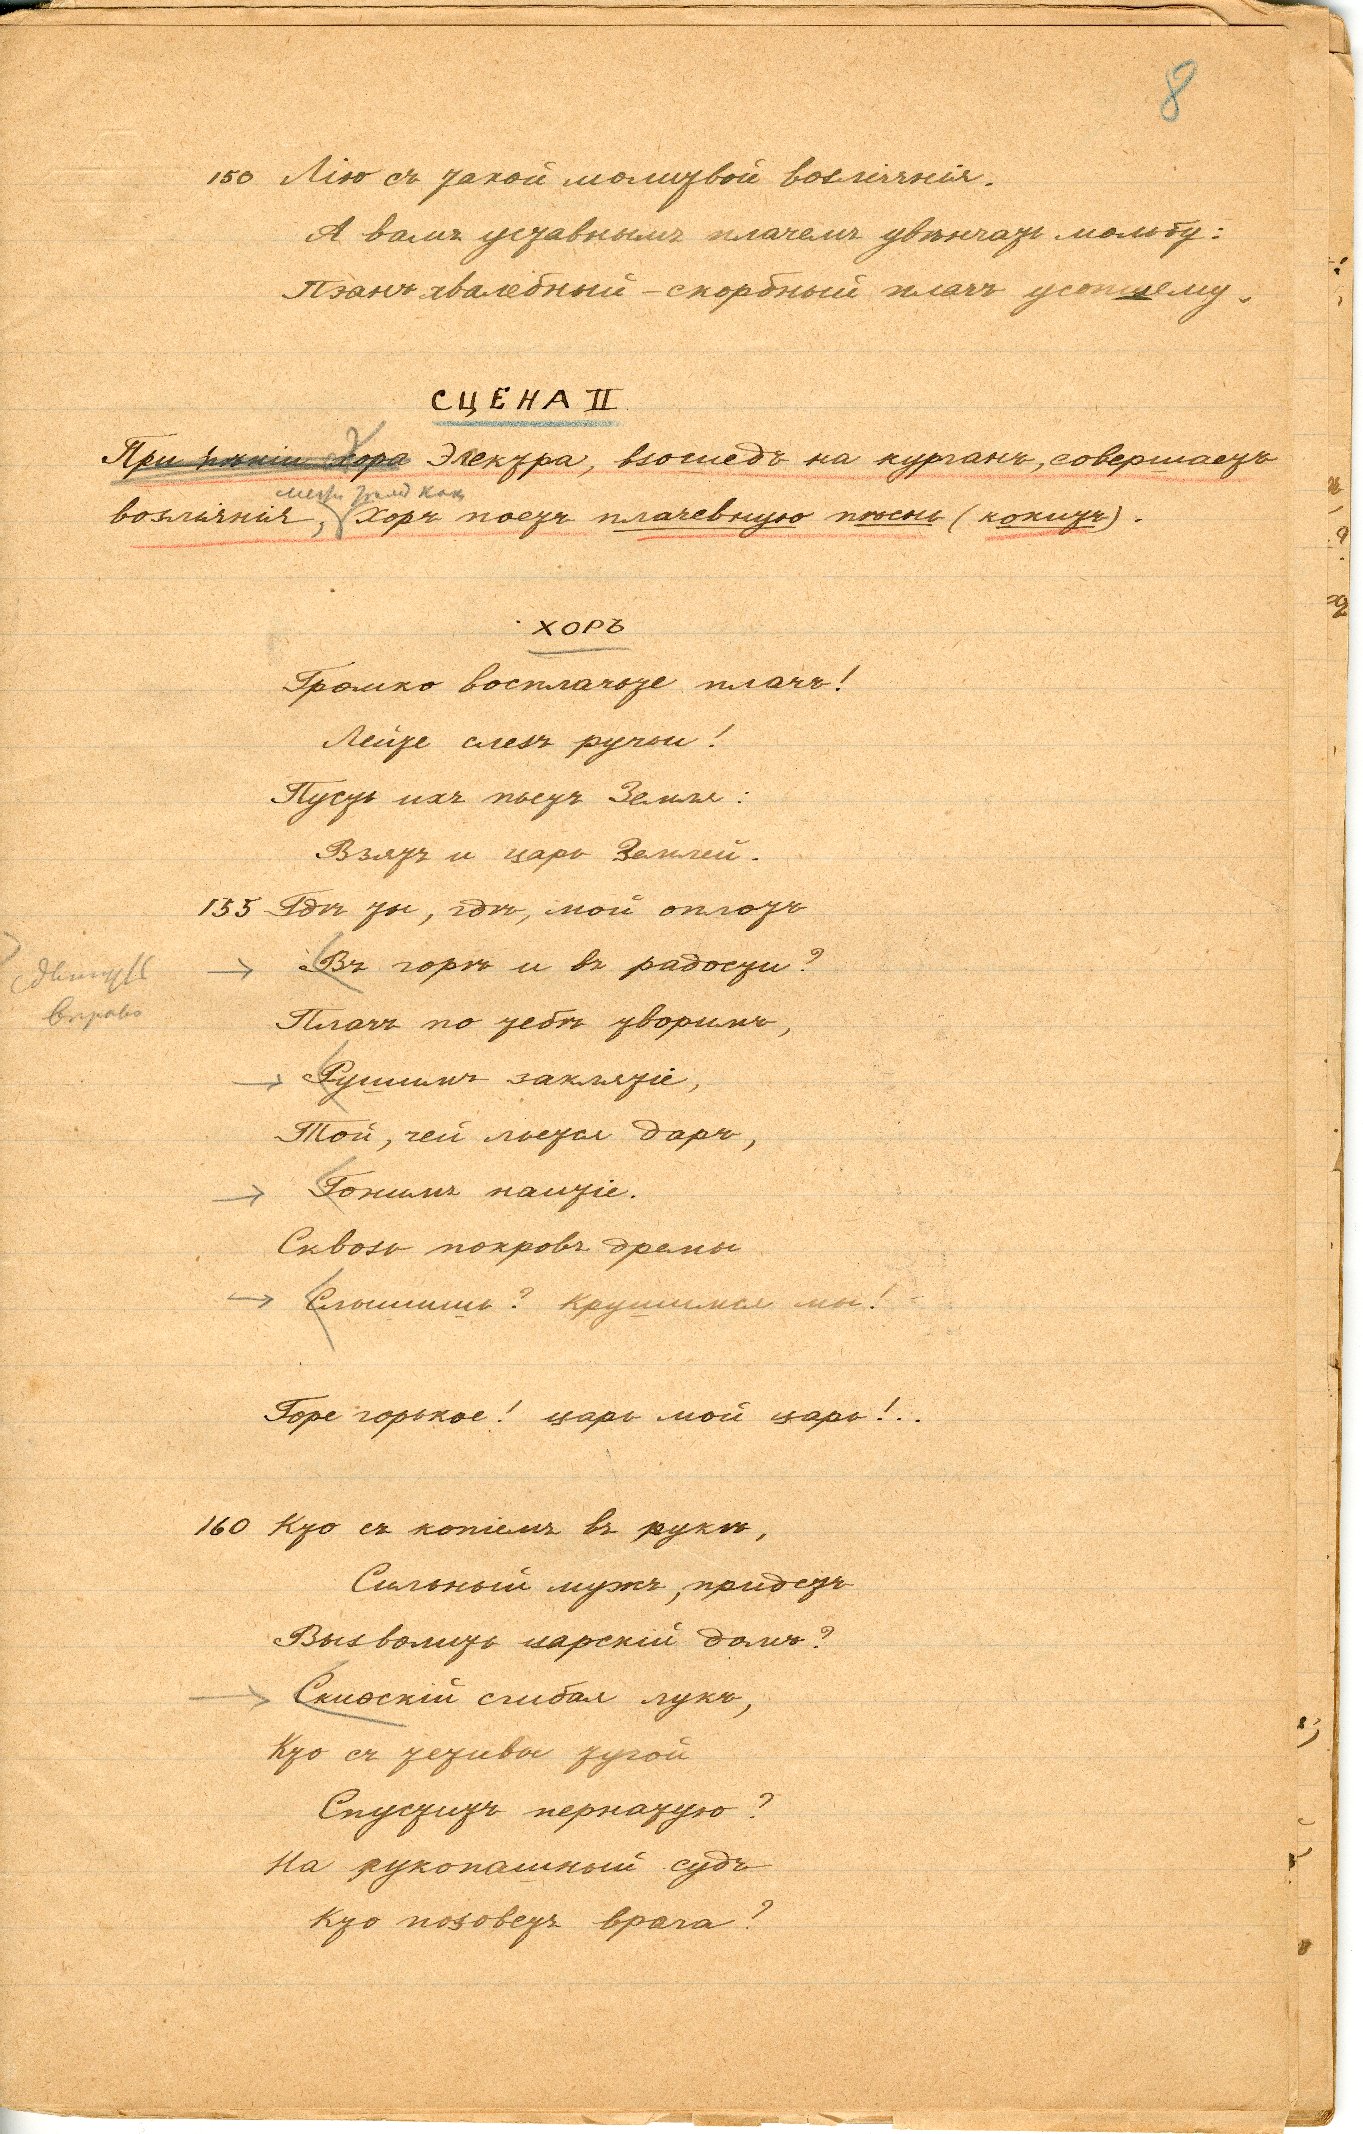 8
150 Лію съ такой молитвой возліянія.
А вамъ уставнымъ плачемъ увѣнчать мольбу:
Пэанъ хвалебный – скорбный плачъ усопшему.
СЦЕНА II
При пѣніи Хора Электра, взошедъ на курганъ, совершаетъ
межъ тѣмъ какъ
возліянія, Хоръ поетъ плачевную пѣснь (коммъ).
ХОРЪ
Громко восплачьте плачъ!
Лейте слезъ ручьи!
Пусть ихъ пьетъ Земля:
Взятъ и царь Землей.
155 Гдѣ ты, гдѣ, мой оплотъ
Въ горѣ и въ радости?
сдвинуть
вправо
Плачъ по тебѣ творимъ,
Рушимъ заклятіе,
Той, чей льется даръ,
Гонимъ наитіе.
Сквозь покровъ дремы
Слышишь? Крушимся мы!
Горе горькое! царь мой царь!..
160 Кто съ копіемъ въ рукѣ,
Сильный мужъ, придетъ
Вызволить царскій домъ?
Скиѳскій сгибая лукъ,
Кто съ тетивы тугой
Спуститъ пернатую?
На рукопашный судъ
Кто позоветъ врага?